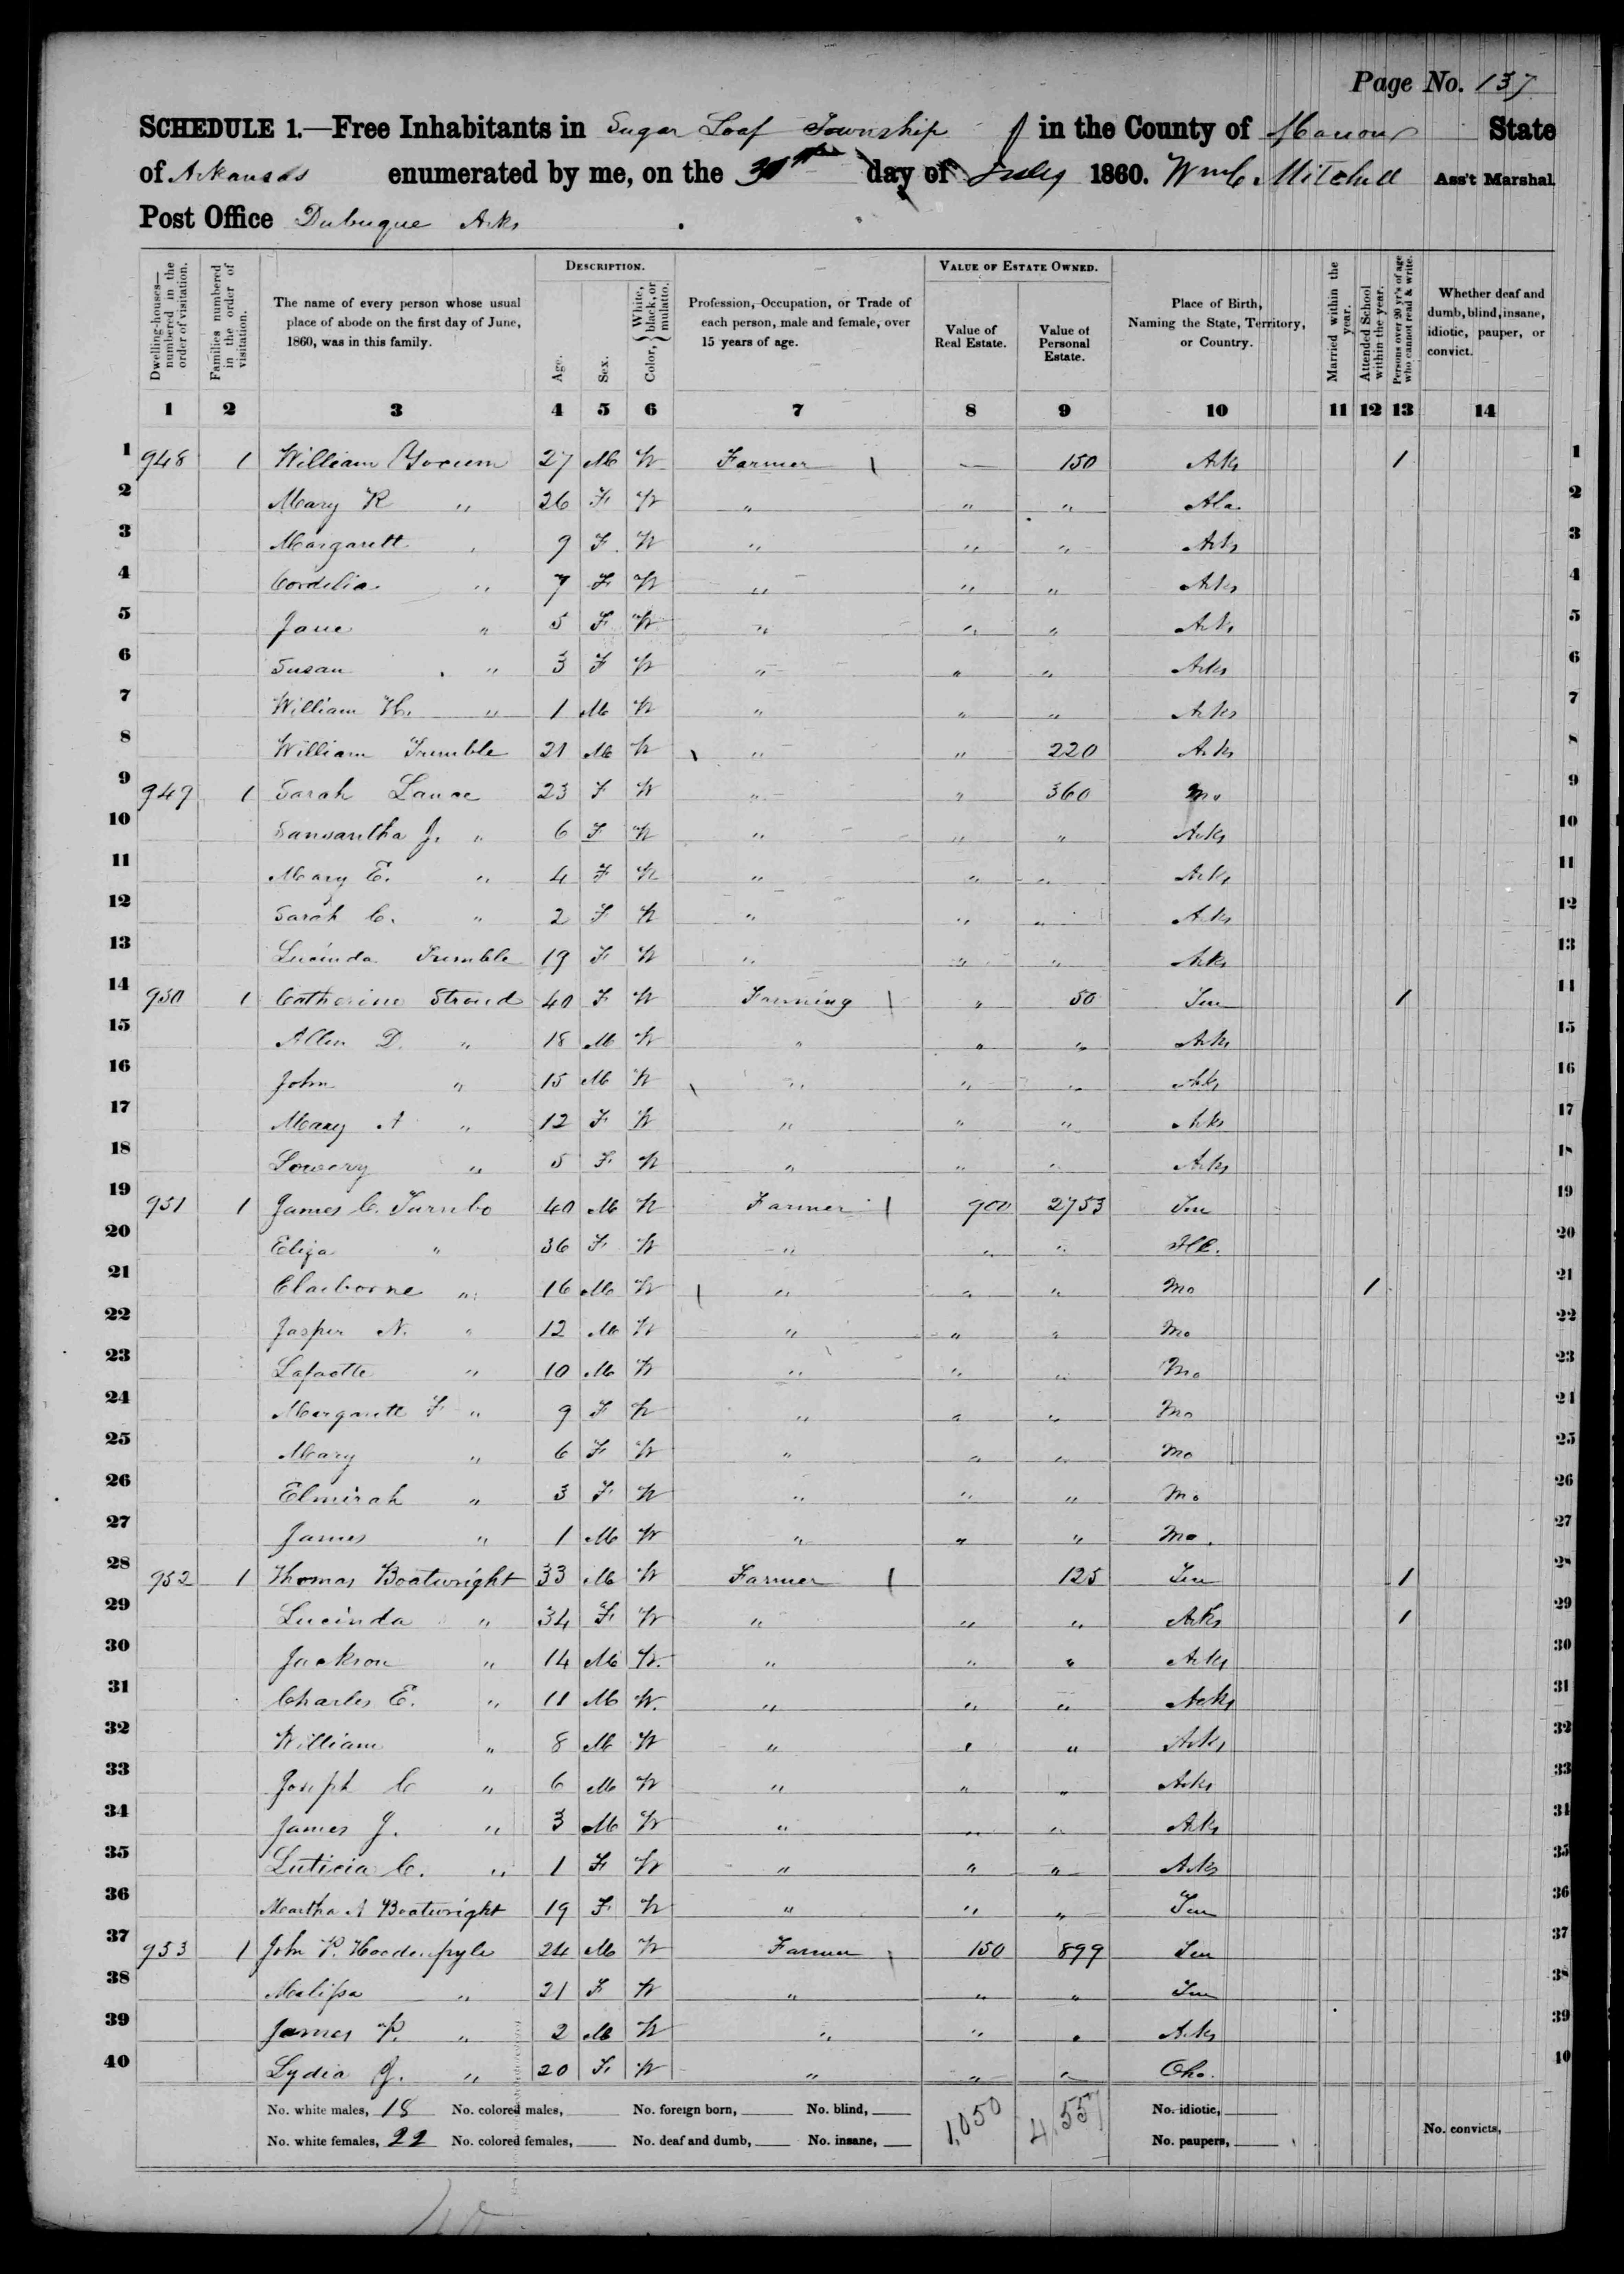 Page No. 137
SCHEDULE 1.—Free Inhabitants in Sugar Loaf Township in the County of Marion State
of Arkansas enumerated by me, on the 30th day of July 1860. Wm C Mitchell Ass't Marshal.
Post Office Dubuque Arks
DESCRIPTION. VALUE OF ESTATE OWNED.
Dwelling-houses—numbered in the order of visitation. Families numbered in the order of visitation. The name of every person whose usual place of abode on the first day of June, 1860, was in this family. Age. Sex. Color, White, black, or mulatto. Profession, Occupation, or Trade of each person, male and female, over 15 years of age. Value of Real Estate. Value of Personal Estate. Place of Birth, Naming the State, Territory, or Country. Married within the year. Attended School within the year. Persons over 20 yr's of age who cannot read & write. Whether deaf and dumb, blind, insane, idiotic, pauper, or convict.
1 2 3 4 5 6 7 8 9 10 11 12 13 14
1 948 1 William Yocum 27 M W Farmer — 150 Ark 1 1
2 Mary R " 26 F W " " " Ala 2
3 Margarett " 9 F W " " " Arks 3
4 Cordelia " 7 F W " " " Arks 4
5 Jane " 5 F W " " " Ark 5
6 Susan " 3 F W " " " Arks 6
7 William H. " 1 M W " " " Arks 7
8 William Trimble 21 M W " " 220 Ark 8
9 949 1 Sarah Lance 23 F W " " 360 Mo 9
10 Sansantha J. " 6 F W " " " Arks 10
11 Mary E. " 4 F W " " " Arks 11
12 Sarah C. " 2 F W " " " Ark 12
13 Lucinda Trimble 19 F W " " " Ark 13
14 950 1 Catherine Stroud 40 F W Farming " 50 Ten 1 14
15 Allen D. " 18 M W " " " Ark 15
16 John " 15 M W " " " Ark 16
17 Mary A " 12 F W " " " Ark 17
18 Lowery " 5 F W " " " Arks 18
19 951 1 James C. Turnbo 40 M W Farmer 900 2753 Ten 19
20 Eliza " 36 F W " " " Ill. 20
21 Claiborne " 16 M W " " " Mo 1 21
22 Jasper N. " 12 M W " " " Mo 22
23 Lafaette " 10 M W " " " Mo 23
24 Margarett F " 9 F W " " " Mo 24
25 Mary " 6 F W " " " Mo 25
26 Elmirah " 3 F W " " " Mo 26
27 James " 1 M W " " " Mo. 27
28 952 1 Thomas Boatwright 33 M W Farmer 125 Ten 1 28
29 Lucinda " 34 F W " " " Arks 1 29
30 Jackson " 14 M W. " " " Arks 30
31 Charles E. " 11 M W. " " " Arks 31
32 William " 8 M W " " " Arks 32
33 Joseph C " 6 M W " " " Arks 33
34 James J. " 3 M W " " " Ark 34
35 Luticia C. " 1 F W " " " Arks 35
36 Martha A Boatwright 19 F W " " " Ten 36
37 953 1 John P. Hoodenpyle 24 M W Farmer 150 899 Ten 37
38 Malissa " 21 F W " " " Ten 38
39 James P. " 2 M W " " " Ark 39
40 Lydia J. " 20 F W " " " Oho. 40
No. white males, 18 No. colored males, No. foreign born, No. blind, 1,050 4,557 No. idiotic,
No. white females, 22 No. colored females, No. deaf and dumb, No. insane, No. paupers, No. convicts,
40